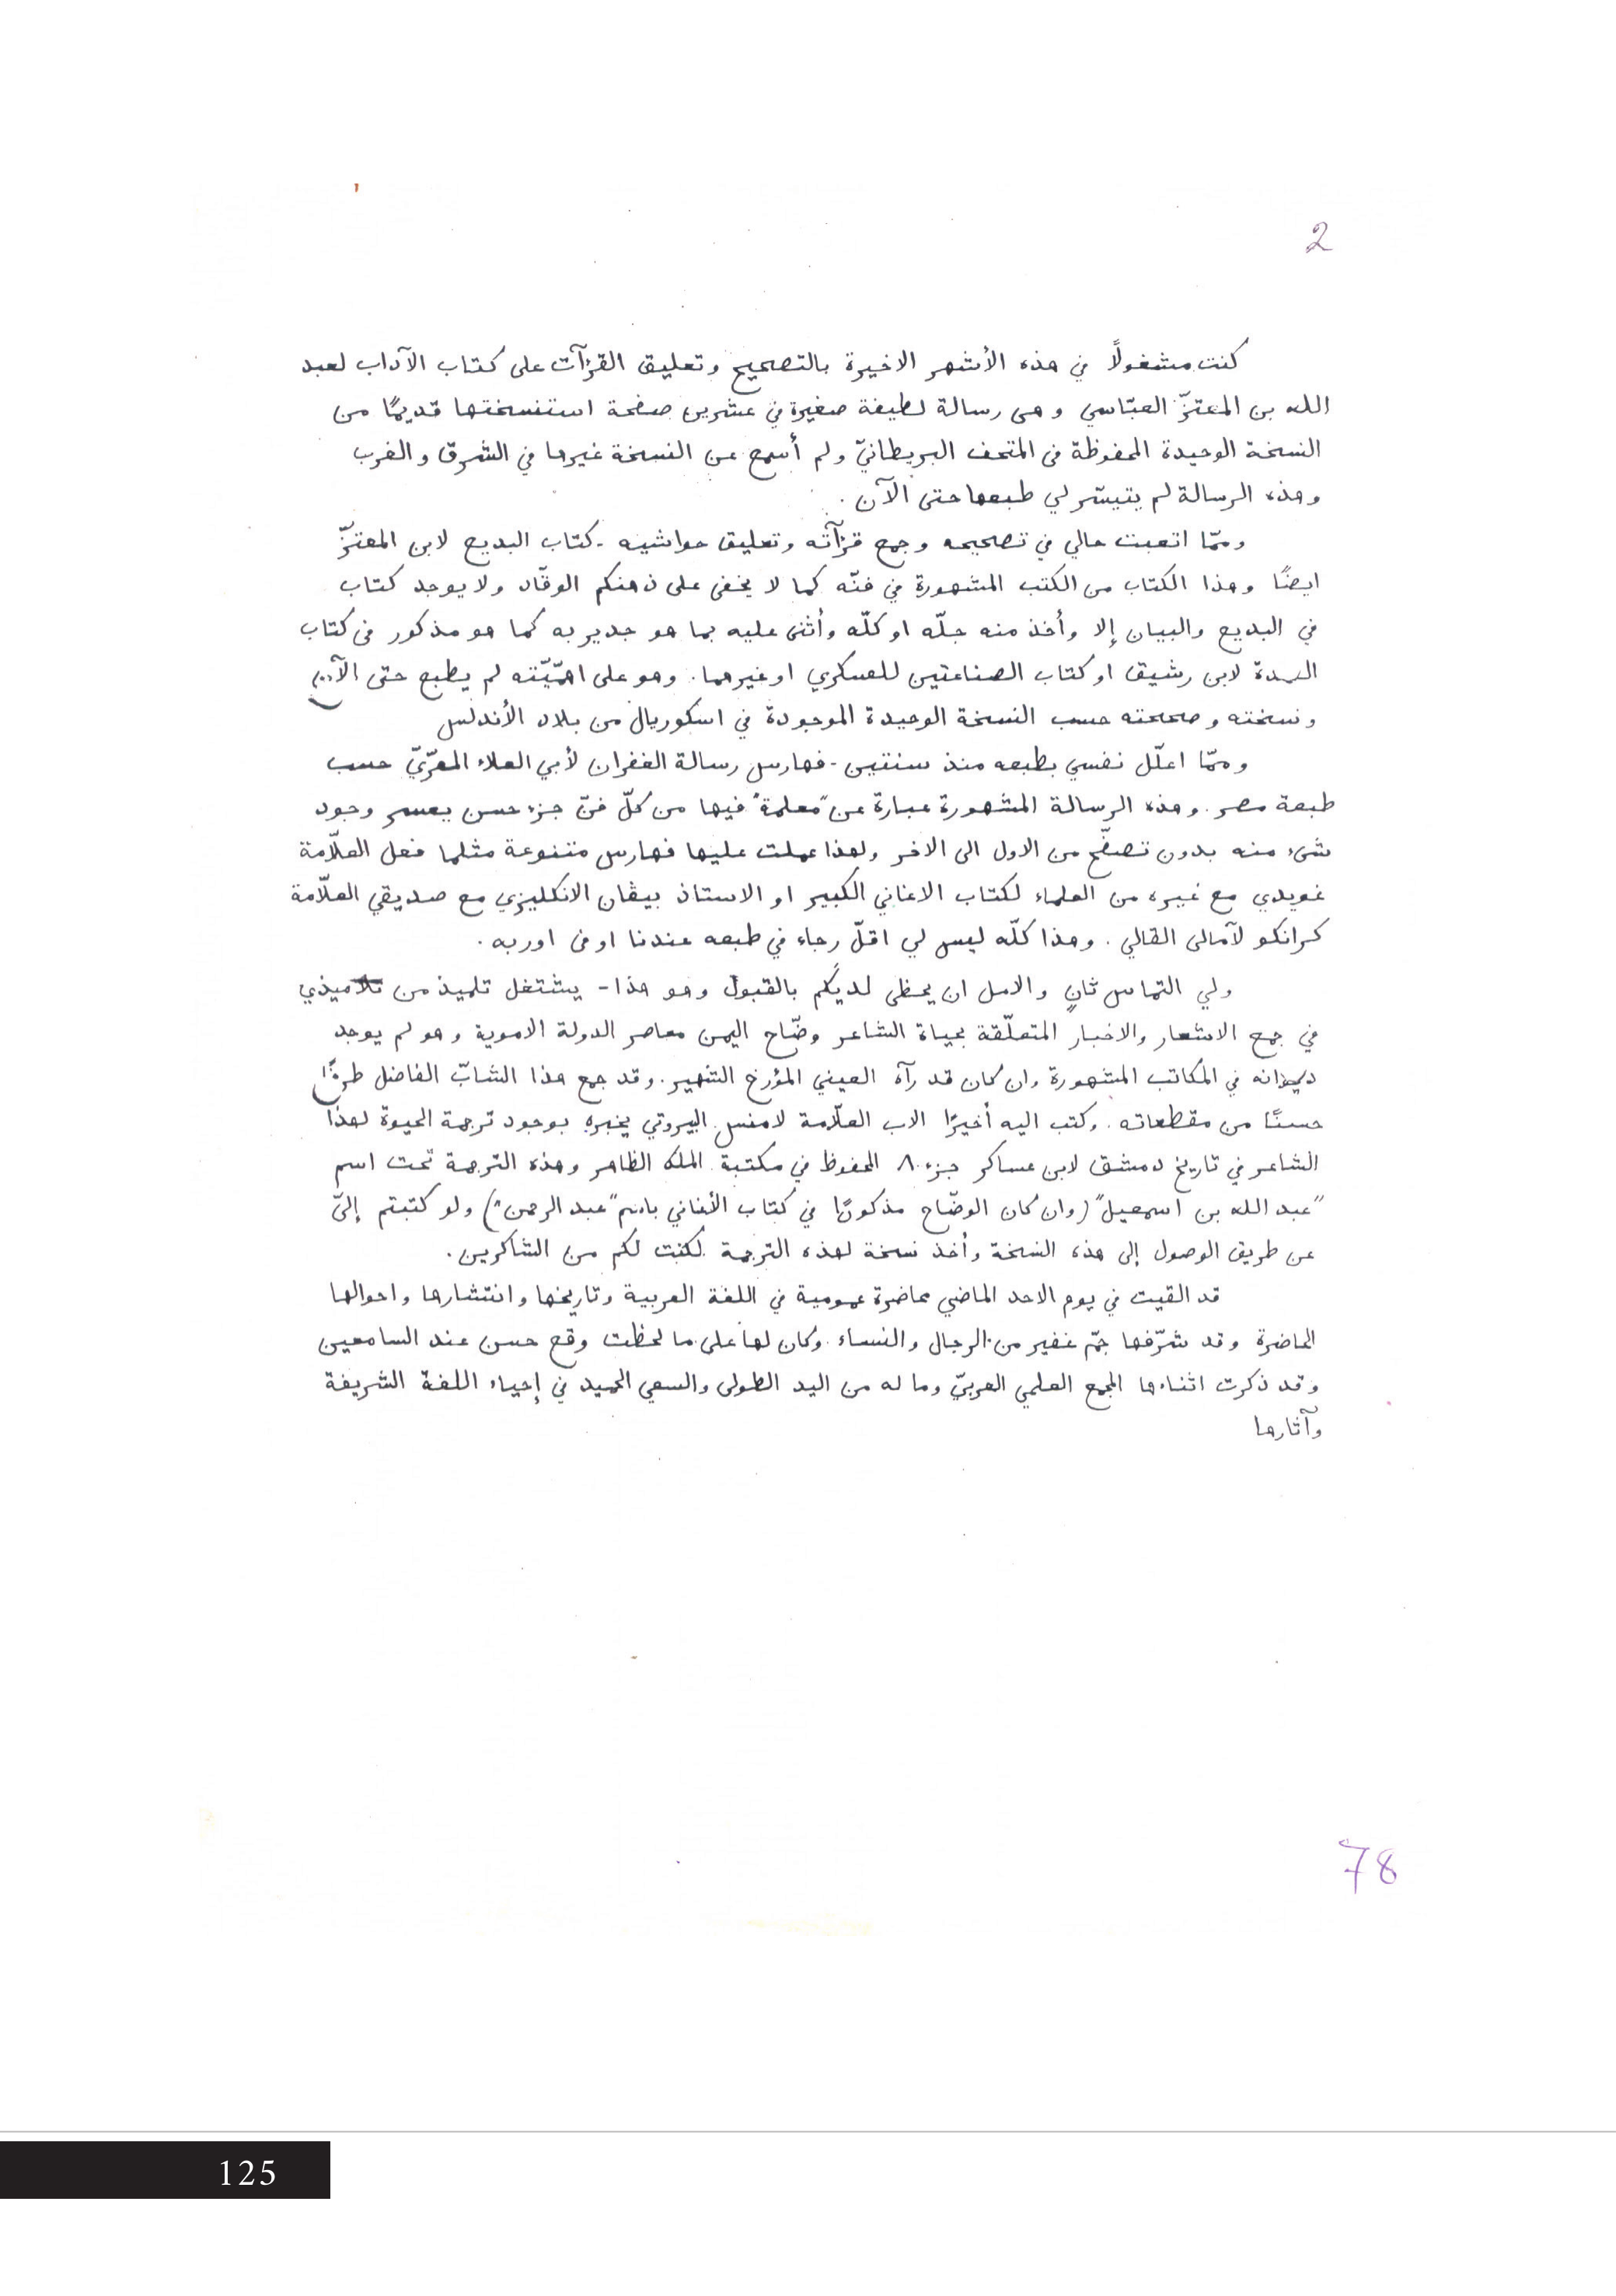 2
كنت مشغولاً في هذه الأشهر الاخيرة بالتصحيح وتعليق القرآآت على كتاب الآداب لعبد
الله بن المعتزّ العبّاسي وهى رسالة لطيفة صغيرة في عشرين صفحة استنسختها قديمًا من
النسخة الوحيدة المحفوظة فى المتحف البريطانيّ ولم أسمع عن النسخة غيرها في الشرق والغرب
وهذه الرسالة لم يتيسّر لي طبعها حتى الآن .
وممّا اتعبت حالي في تصحيحه وجمع قرآآته وتعليق حواشيه - كتاب البديع لابن المعتزّ
ايضًا وهذا الكتاب من الكتب المشهورة في فنّه كما لا يخفى على ذهنكم الوقّاد ولا يوجد كتاب
في البديع والبيان إلا وأخذ منه جلّه او كلّه وأثنى عليه بما هو جدير به كما هو مذكور فى كتاب
العمدة لابن رشيق او كتاب الصناعتين للعسكري او غيرهما . وهو على اهمّيّته لم يطبع حتى الآن
ونسخته وصححته حسب النسخة الوحيدة الموجودة في اسكوريال من بلاد الأندلس
وممّا اعلّل نفسي بطبعه منذ سنتين - فهارس رسالة الغفران لأبي العلاء المعرّيّ حسب
طبعة مصر . وهذه الرسالة المشهورة عبارة عن "معلمة" فيها من كلّ فنّ جزء حسن يعسر وجود
شىء منه بدون تصفّح من الاول الى الاخر ولهذا عملت عليها فهارس متنوعة مثلما فعل العلّامة
غويدي مع غيره من العلماء لكتاب الاغاني الكبير او الاستاذ بيڤان الانكليزي مع صديقي العلّامة
كرانكو لآمالى القالي . وهذا كلّه ليس لي اقلّ رجاء في طبعه عندنا او فى اوربه .
ولي التماس ثانٍ والامل ان يحظى لديكم بالقبول وهو هذا - يشتغل تلميذ من تلاميذي
في جمع الاشعار والاخبار المتعلّقة بحياة الشاعر وضّاح اليمن معاصر الدولة الاموية وهو لم يوجد
ديوانه في المكاتب المشهورة وان كان قد رآه العيني المؤرخ الشهير . وقد جمع هذا الشابّ الفاضل طرفًا
حسنًا من مقطعاته . وكتب اليه أخيرًا الاب العلّامة لامنس البيروتي يخبره بوجود ترجمة الحيوة لهذا
الشاعر في تاريخ دمشق لابن عساكر جزء ٨ المحفوظ في مكتبة الملك الظاهر وهذه الترجمة تحت اسم
"عبد الله بن اسمعيل" (وان كان الوضّاح مذكورًا في كتاب الأغاني باسم "عبد الرحمن") ولو كتبتم إليّ
عن طريق الوصول إلى هذه النسخة وأخذ نسخة لهذه الترجمة لكنت لكم من الشاكرين .
قد القيت في يوم الاحد الماضي محاضرة عمومية في اللغة العربية وتاريخها وانتشارها واحوالها
الحاضرة وقد شرّفها جمّ غفير من الرجال والنساء وكان لها على ما لحظت وقع حسن عند السامعين
وقد ذكرت اثناءها المجمع العلمي العربيّ وما له من اليد الطولى والسعي الحميد في إحياء اللغة الشريفة
وآثارها
78
125